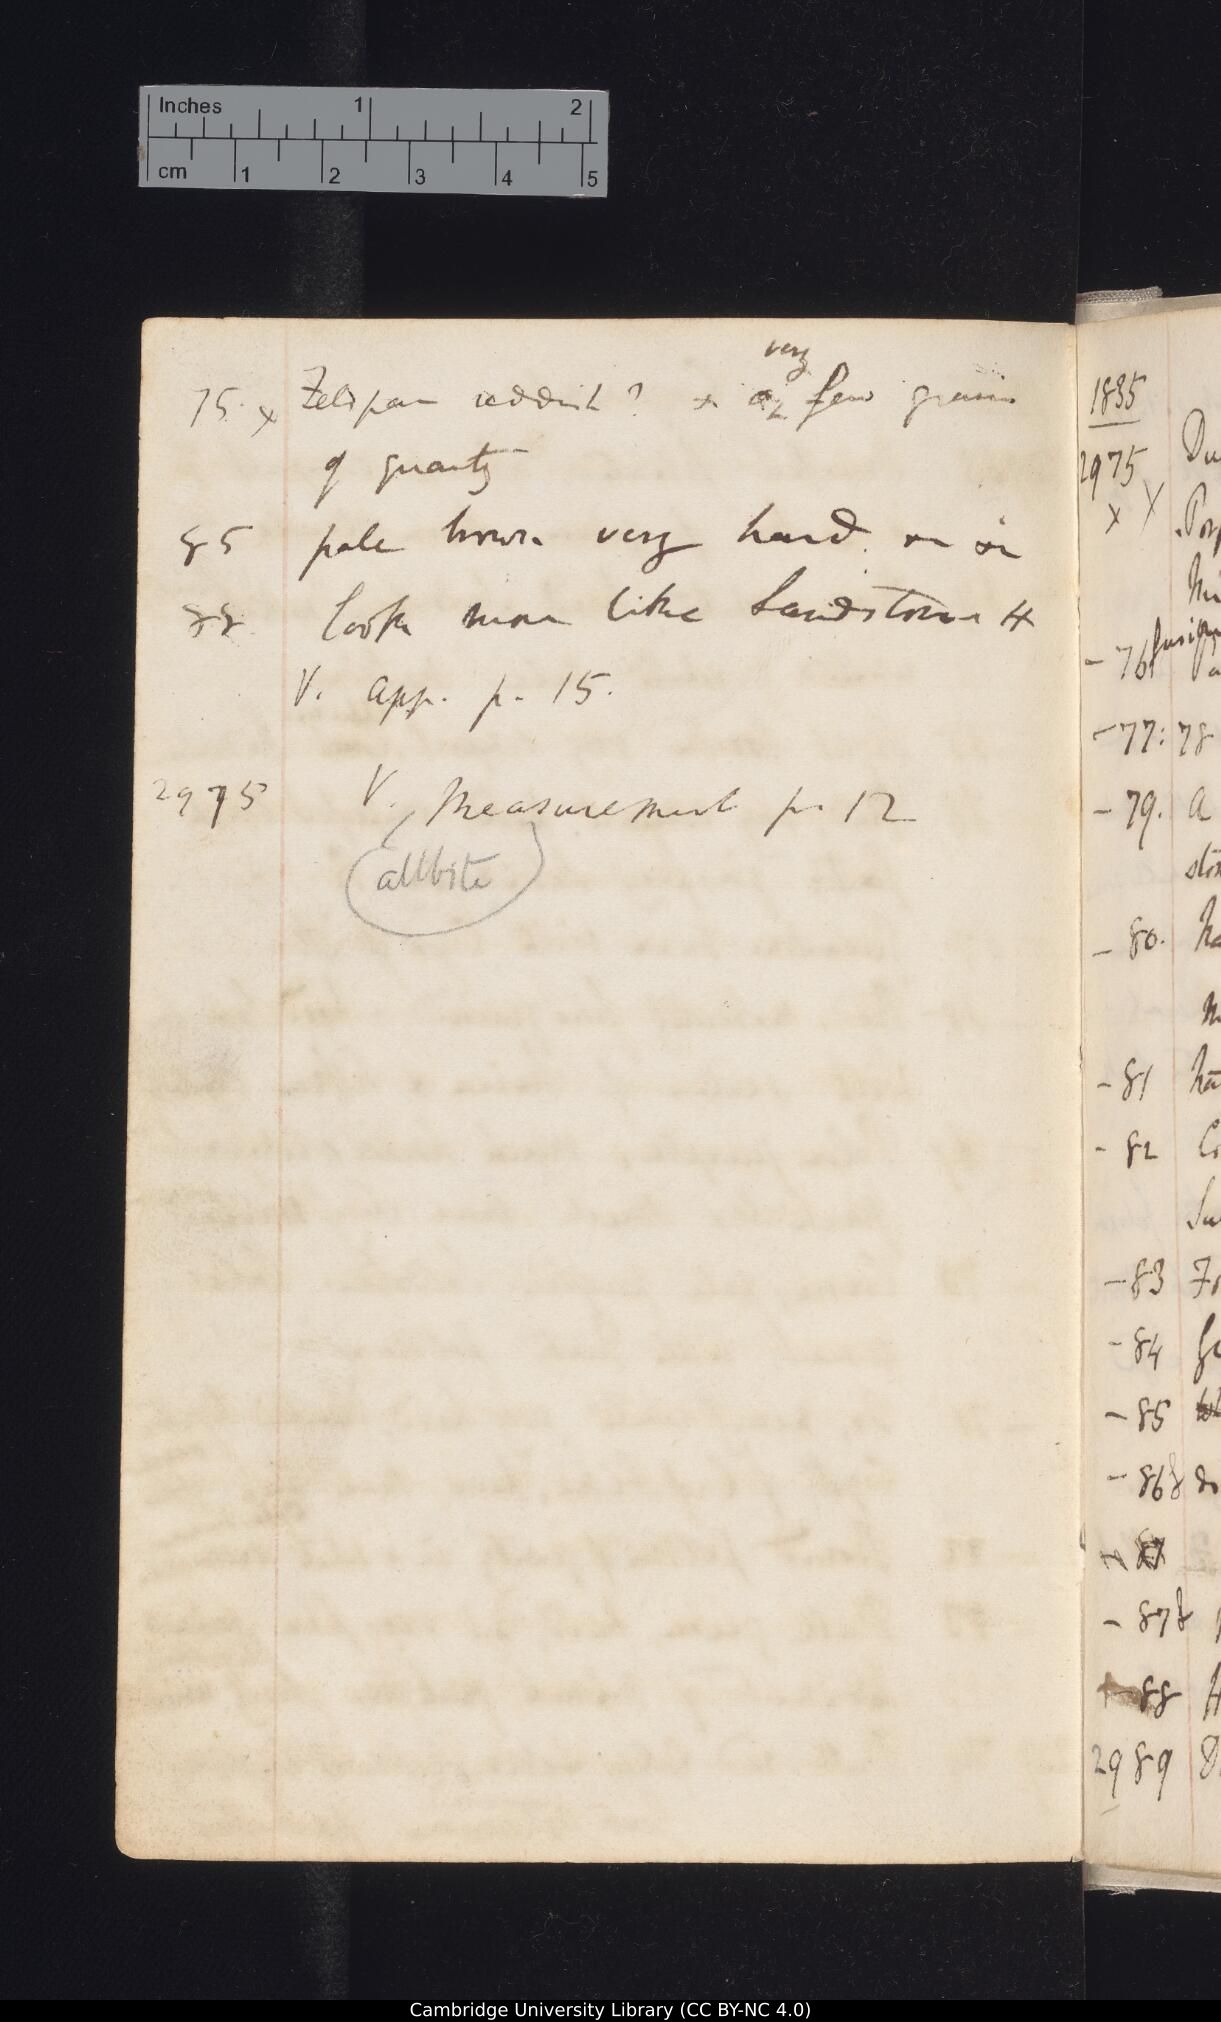 Inches 1 2
cm 1 2 3 4 5
very
75. x Felspar reddish? + a few grains
of quartz
85 pale brown very hard.
88 look more like Sandstone #
V. app. p. 15.
2975 V. Measurement p. 12
(allbite)
1835
2975
x
- 76
- 77: 78
- 79. A
- 80.
- 81
- 82
- 83
- 84
- 85
- 86
- 87
- 88
2989
Cambridge University Library (CC BY-NC 4.0)